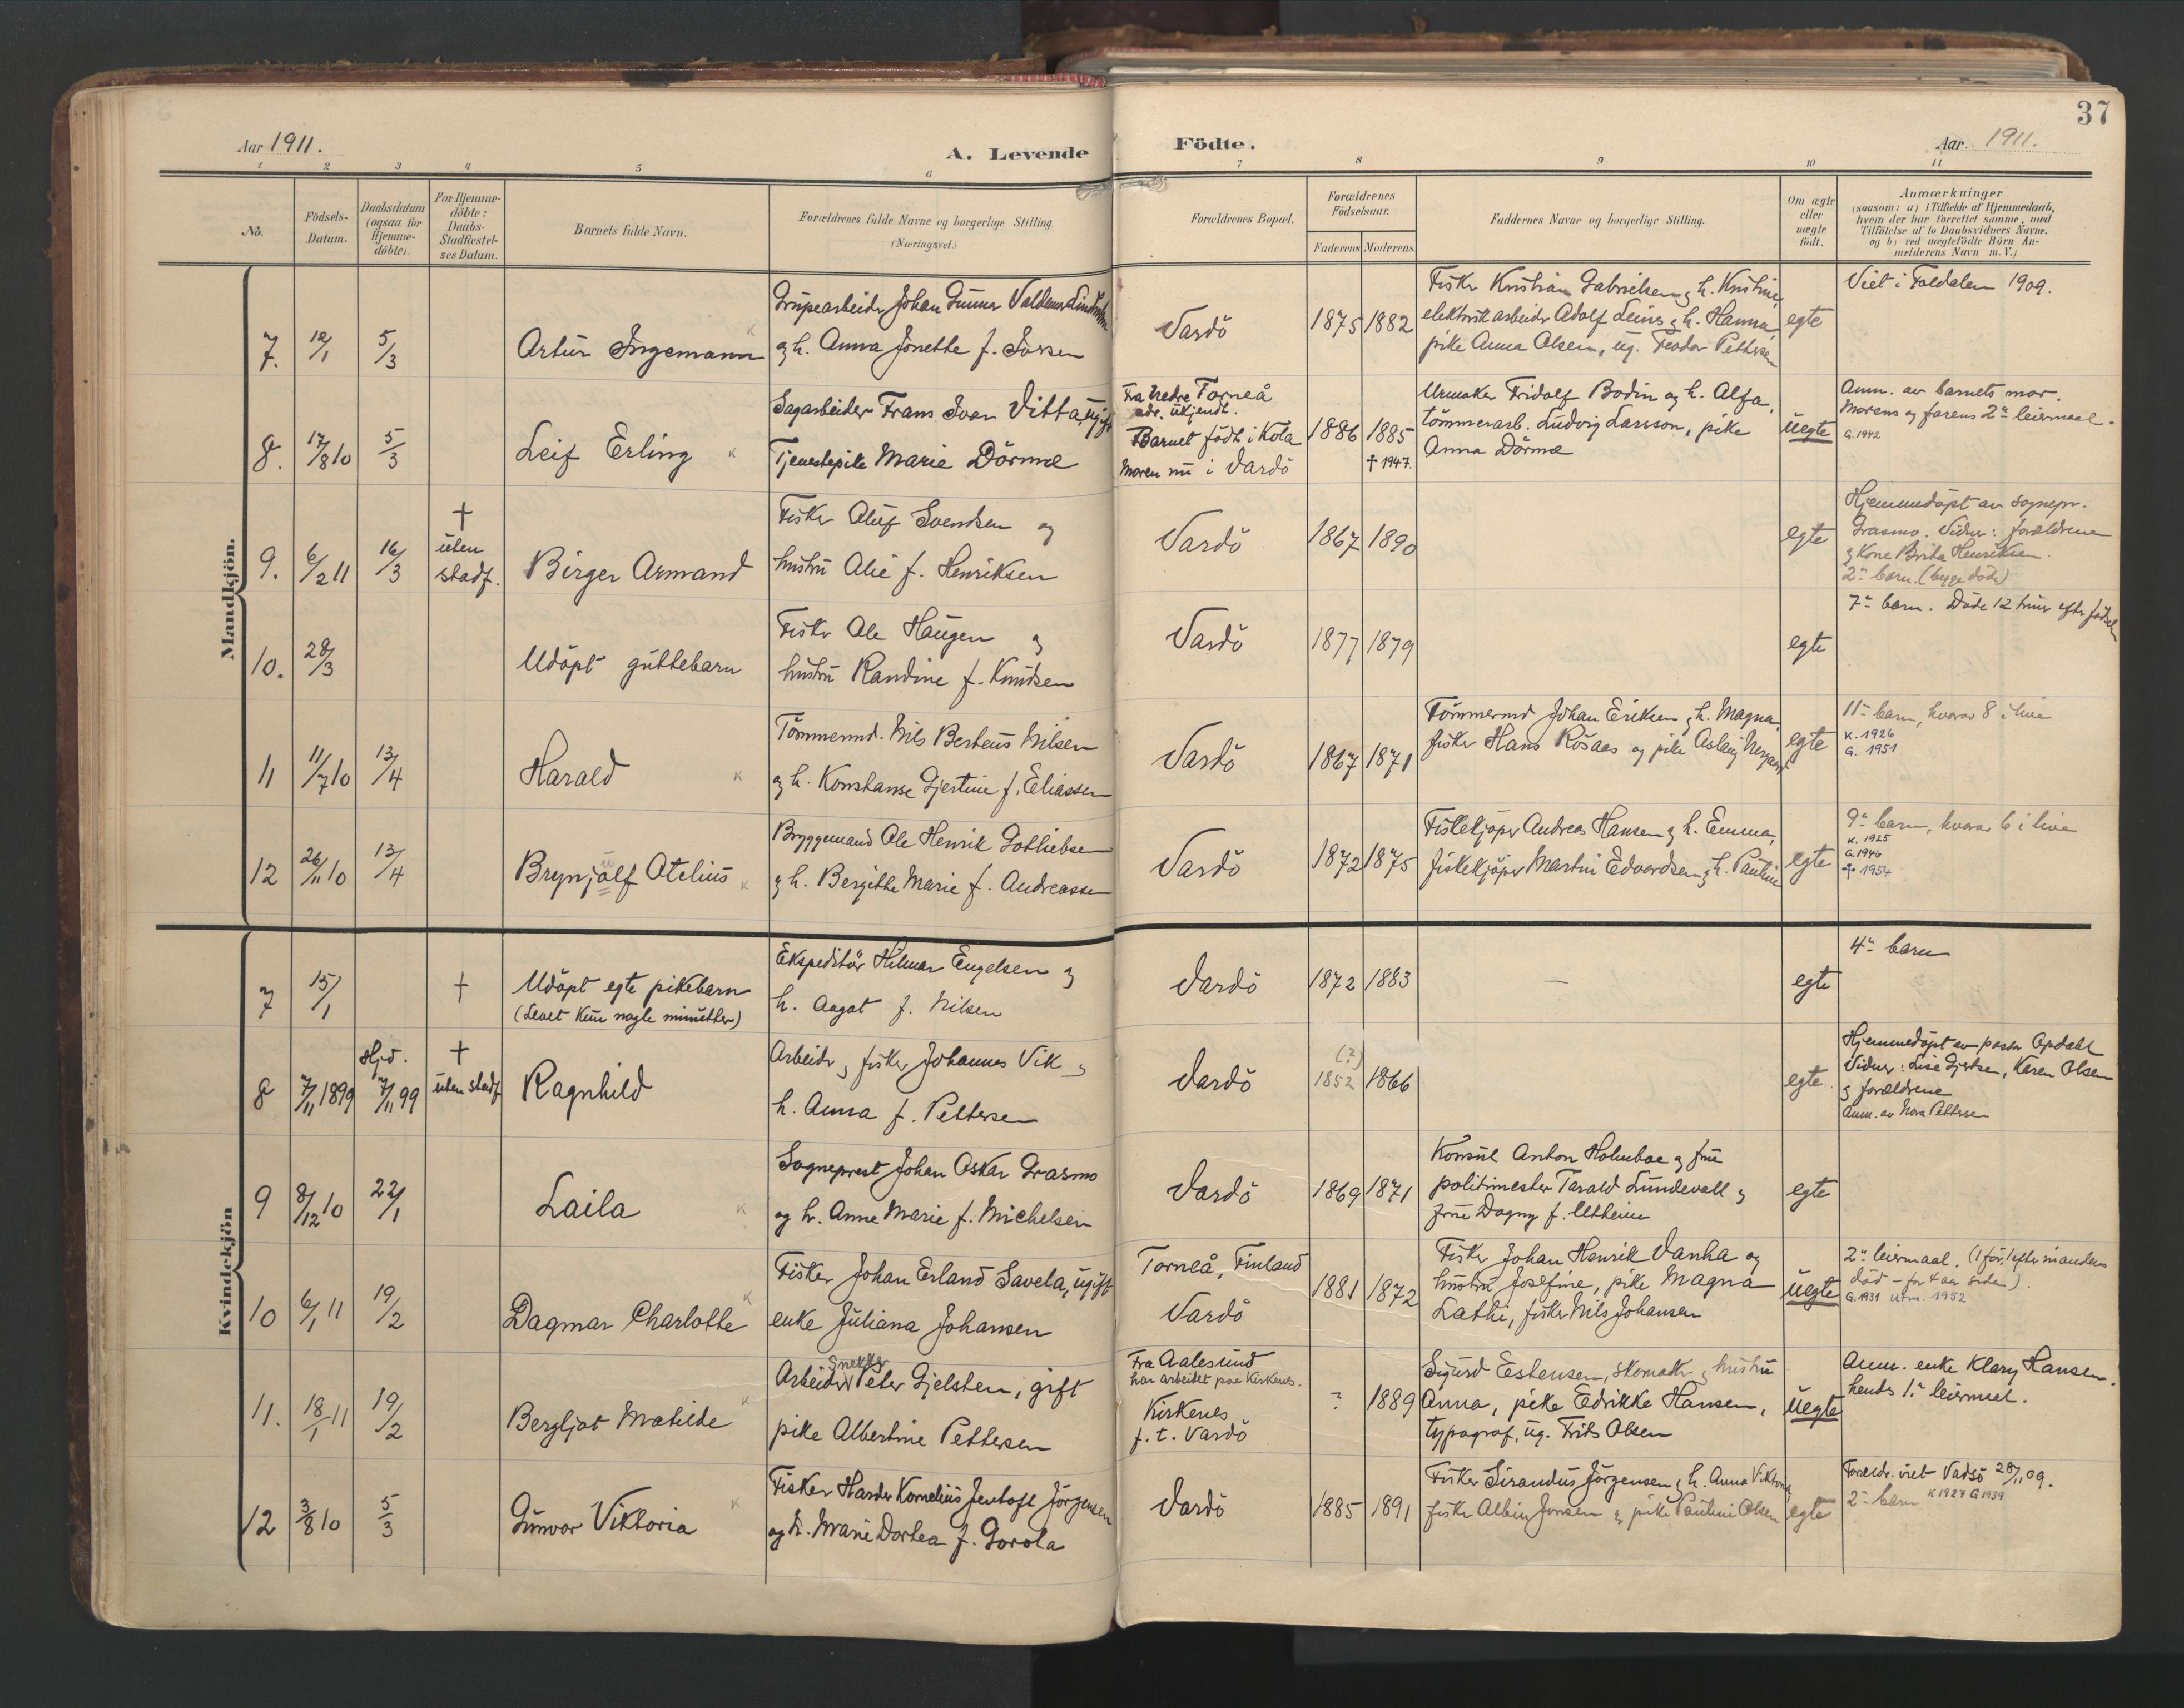 37
Aar 1911.
A. Levende
Födte.
Aar. 1911.
1 2 3 4 5 6 7 8 9 10 11
No.
Födsels-
Datum.
Daabsdatum
(ogsaa for
Hjemme-
döbte).
For Hjemme-
döbte:
Daabs-
Stadfæstel-
ses Datum.
Barnets fulde Navn.
Forældrenes fulde Navne og borgerlige Stilling
(Næringsvei.)
Forældrenes Bopæl.
Forældrenes
Födselsaar.
Faderens Moderens
Faddernes Navne og borgerlige Stilling.
Om ægte
eller
uægte
födt.
Anmærkninger
(saasom: a) i Tilfælde af Hjemmedaab,
hvem der har forrettet samme, med
Tilföielse af to Daabsvidners Navne.
og b) ved uægtefödte Börn An-
melderens Navn m. V.)
Mandkjön.
7. 12/1 5/3
Artur Ingemann
Grupearbeider Johan Gunnar Valdemar
og h. Anna Jonette f.
Vardö
1875 1882
Fisker Kristian Gabrielsen og h. Kristine,
elektrisk arbeider Adolf Leines og h. Hanna,
pike Anna Olsen, ug. Teodor Pettersen
egte
Viet i Foldalen 1909.
8. 17/8 10 5/3
Leif Erling
Sagarbeider Frans Ivar Vitta, ugift
Tjenestepike Marie Dörmæ
Fra Nedre Torneå
adr. ukjendt.
Barnet födt i Kola
Moren nu i Vardö
1886 1885
† 1947.
Urmaker Fridolf Bodin og h. Alfa,
tömmerarb. Ludvig Larsson, pike
Anna Dörmæ
uegte
Anm. av barnets mor.
Morens og farens 2et leiermaal.
G. 1942
9. 6/2 11 16/3
†
uten
stadf.
Birger Armand
Fisker Oluf Svendsen og
hustru Alie f. Henriksen
Vardö
1867 1890
egte
Hjemmedöpt av sognepr.
Grasmo. Vidner: forældrene
og Kone Brita Henriksen.
2et barn. (begge döde)
10. 28/3
Udöpt guttebarn
Fisker Ole Haugen og
hustru Randine f. Knudsen
Vardö
1877 1879
egte
7de barn. Döde 12 timer efter födsel
11 11/7 10 13/4
Harald
Tömmermd. Nils Berteus Nilsen
og h. Konstanse Gjertine f. Eliassen
Vardö
1867 1871
Tömmermd Johan Eriksen og h. Magna,
fisker Hans Rösaas og pike Aslaug
egte
11te barn, hvorav 8 i live
K. 1926
G. 1951
12 26/11 10 13/4
Brynjulf Otelius
Bryggemand Ole Henrik Gotliebsen
og h. Bergitte Marie f. Andreassen
Vardö
1872 1875
Fiskekjöper Andreas Hansen og h. Emma,
fiskekjöper Martin Edvardsen og h. Pauline
egte
9de barn, hvorav 6 i live
K. 1925
G. 1946
† 1954
Kvindekjön
7 15/1
†
Udöpt egte pikebarn
(Levet kun nogle minutter)
Ekspeditör Hilmar Engelsen og
h. Aagot f. Nilsen
Vardö
1872 1883
—
egte
4de barn
8 7/11 1899 Hjd. 7/11 99
†
uten stadf
Ragnhild
Arbeider og fisker Johannes Vik og
h. Anna f. Pettersen
Vardö
(?)
1852 1866
egte.
Hjemmedöpt av pastor Opdahl
Vidner: Lise Gjertsen, Karen Olsen
og forældrene
Anm. av Nora Pettersen
9 8/12 10 22/1
Laila
Sogneprest Johan Oskar Grasmo
og h. Anne Marie f. Michelsen
Vardö
1869 1871
Konsul Anton Holmboe og frue
politimester Tarald Lundevall og
frue Dagny f. Utheim
egte
10 6/1 11 19/2
Dagmar Charlotte
Fisker Johan Erland Savela, ugift
enke Juliana Johansen
Torneå, Finland
Vardö
1881 1872
Fisker Johan Henrik Vanha og
hustru Josefine, pike Magna
Lathi, fisker Nils Johansen
uegte
2et leiermaal. (1 för, 1 efter mandens
död - for 4 aar siden).
G. 1931 utm. 1952
11. 18/1 11 19/2
Bergljot Matilde
Snekker
Arbeider Peter Gjelsten, gift
pike Albertine Pettersen
Fra Aalesund
har arbeidet paa Kirkenes.
Kirkenes
f. t. Vardö
? 1889
Sigurd Estensen, skomaker og hustru
Anna, pike Edrikke Hansen,
typograf, ug. Frits Olsen
uegte
Anm. enke Klary Hansen.
hends 1ste leiermaal.
12 3/8 10 5/3
Gunvor Viktoria
Fisker Harder Kornelius Jentoft Jörgensen
og h. Marie Dorthea f. Gorola
Vardö
1885 1891
Fisker Sirandus Jörgensen og h. Anna Viktoria
fisker Albin Jensen og pike Pauline Olsen
egte
Forældr. viet Vadsö 28/11 09.
2et barn K 1927 G 1939